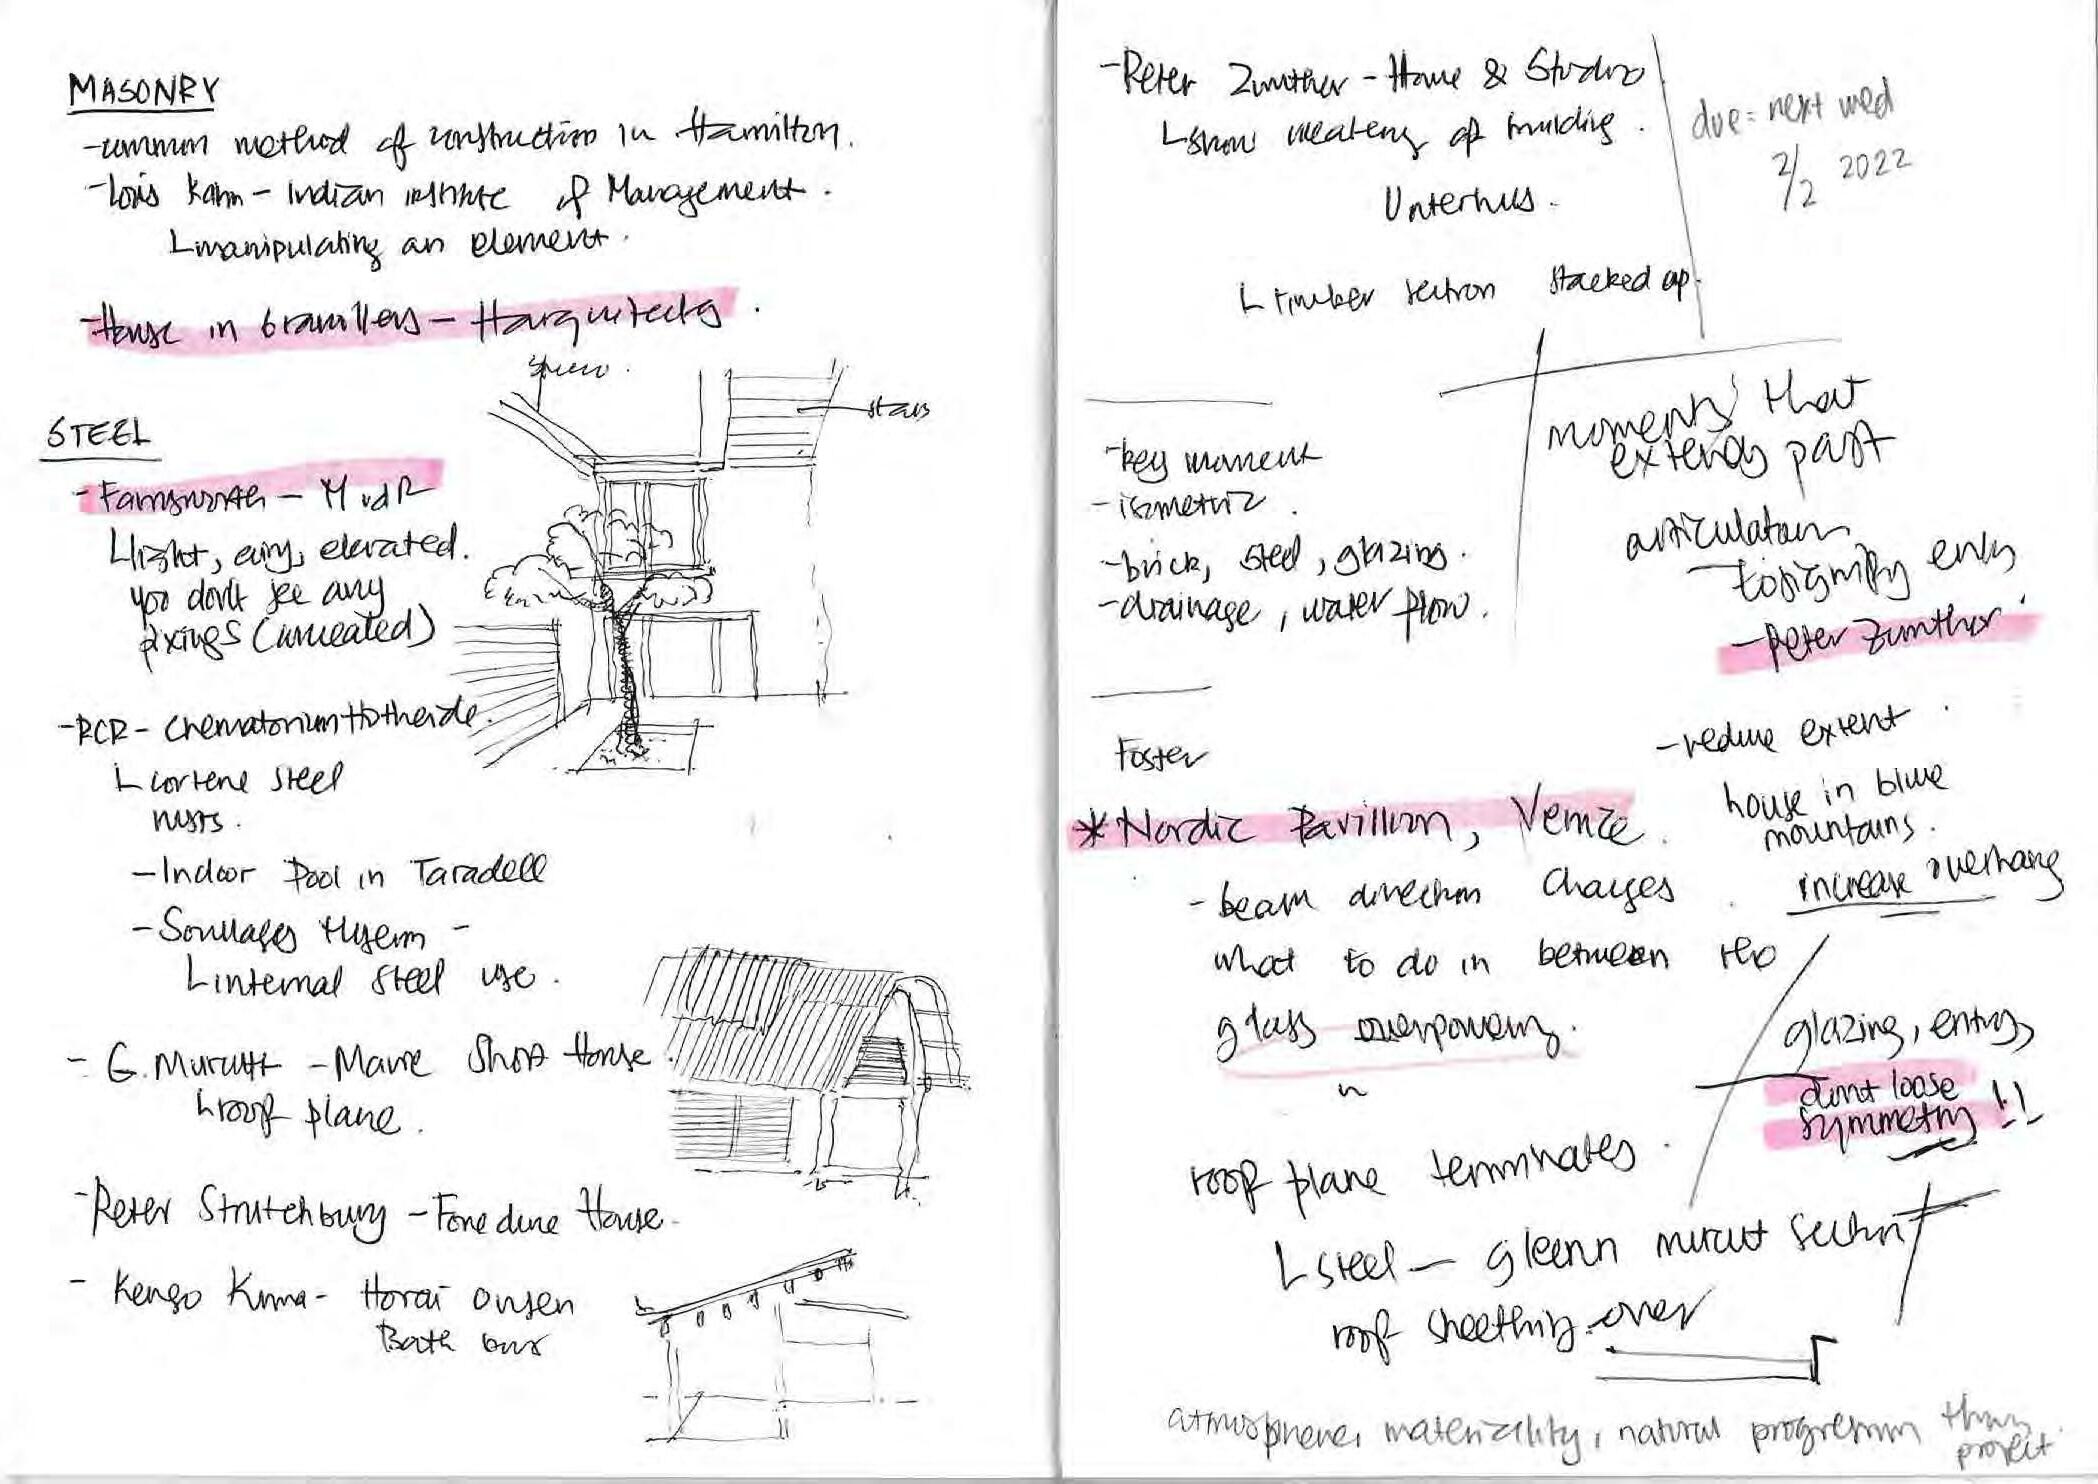 MASONRY
-common method of construction in Hamilton.
-Lois Kahn - Indian institute of Management.
L manipulating an element.
-House in Gramillers - Harquitects.
stairs
STEEL
-Farnsworth - MvdR
L light, airy, elevated.
you don't see any
fixings (concealed)
-RCR - Chematorium Hotheide.
L cortene steel
rusts.
-Indoor Pool in Taradell
-Soullages
L internal steel use.
- G. Murcutt - Marie Short House.
L roof plane.
-Peter Strutchbury - House.
- Kengo Kuma - Horai Onsen
Bath
-Peter Zumthor - Home & Studio
L show of building.
Unterhus.
L timber section stacked up.
due: next wed
2/2 2022
-key moment
-isometric.
-brick, steel, glazing.
-drainage, water flow.
moments that
extends past
articulation
- to signify entry
- Peter Zumthor.
Foster
- reduce extent.
house in blue
mountains.
increase overhang
* Nordic Pavillion, Venice.
- beam direction changes
what to do in between tho
glass overpowering.
glazing, entry,
dont loose
symmetry !!
roof plane terminates.
L steel - gleenn murcut section
roof sheething over
atmosphere, materiality, natural progression thru
project.